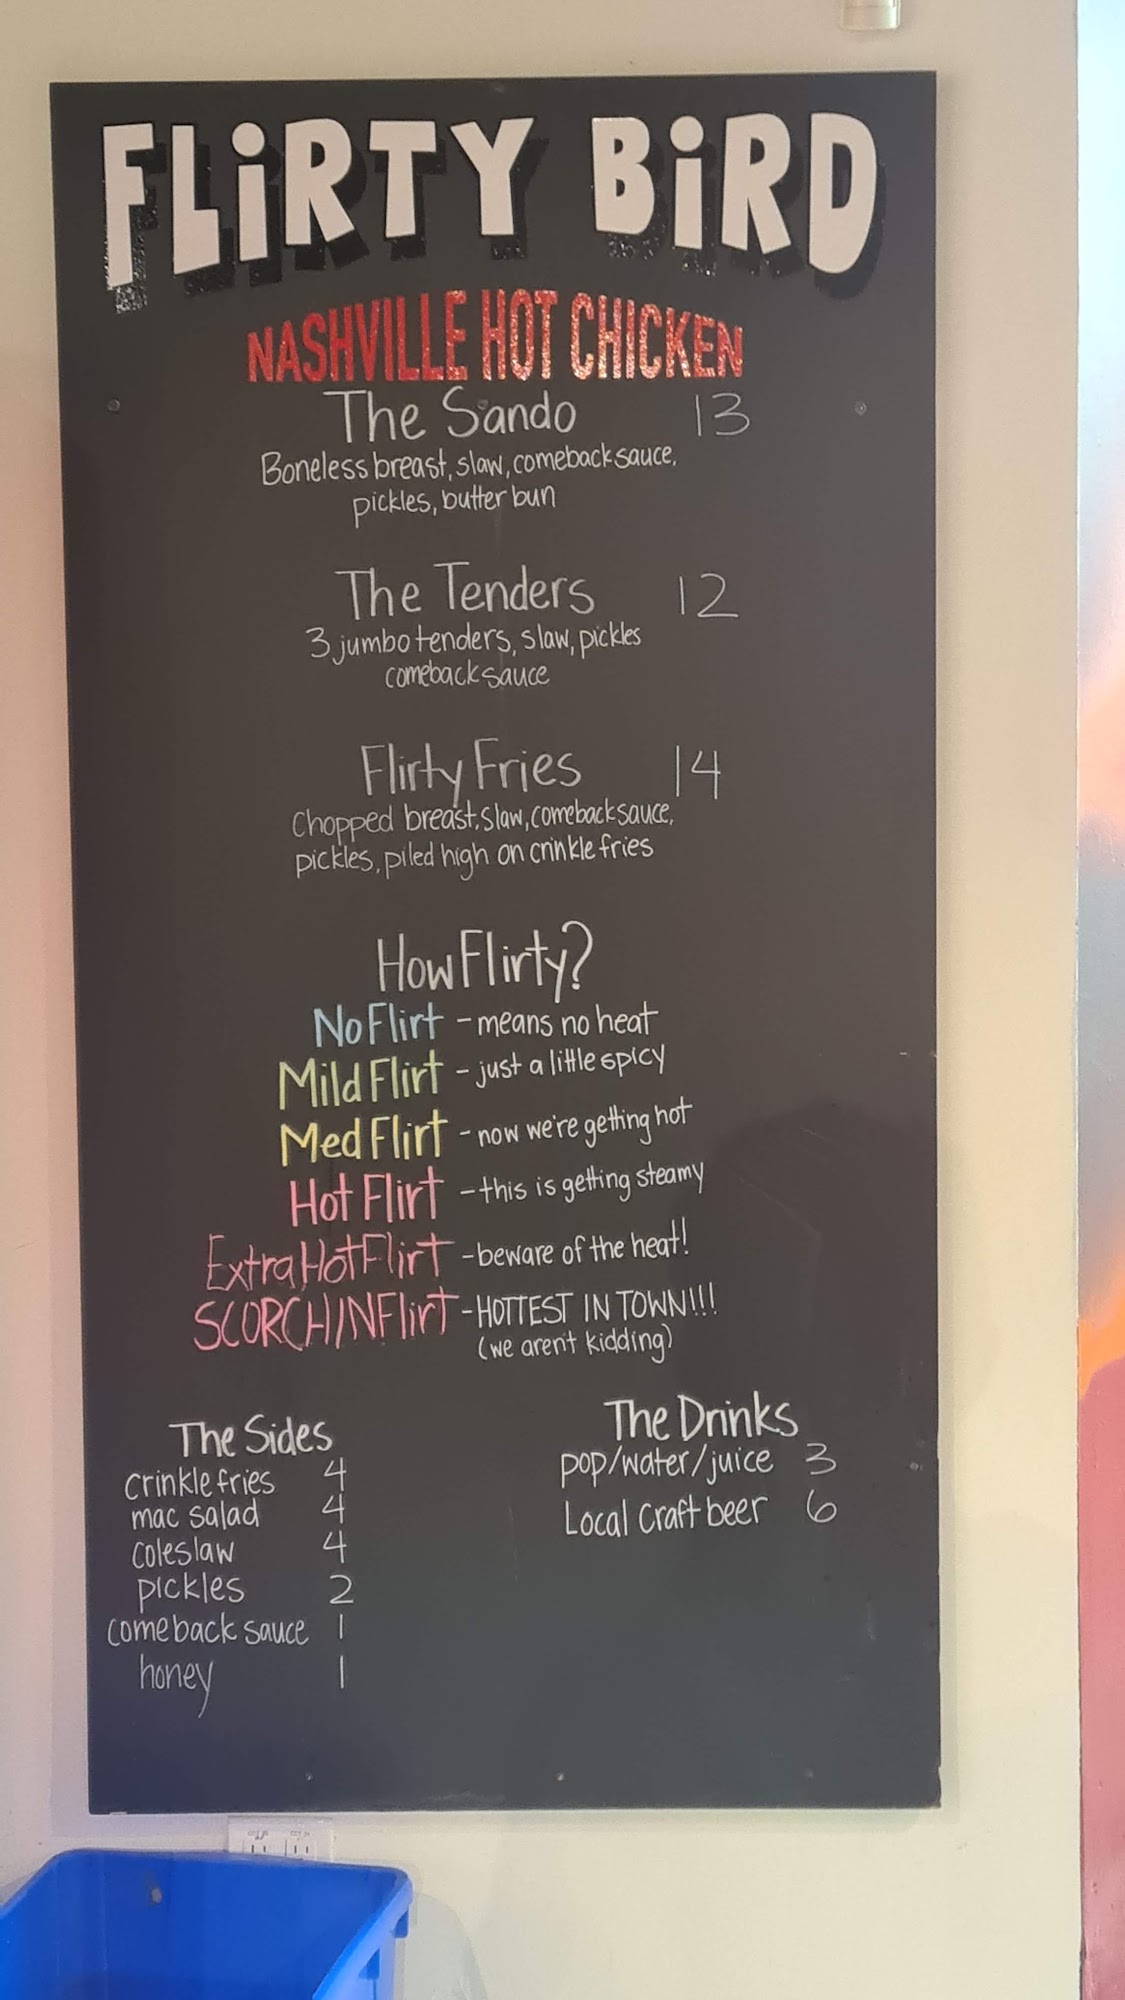 FLiRTY BiRD
NASHVILLE HOT CHICKEN
The Sando 13
Boneless breast, slaw, comeback sauce,
pickles, butter bun
The Tenders 12
3 jumbo tenders, slaw, pickles
comeback sauce
Flirty Fries 14
Chopped breast, slaw, comeback sauce,
pickles, piled high on crinkle fries
How Flirty?
No Flirt - means no heat
Mild Flirt - just a little spicy
Med Flirt - now we're getting hot
Hot Flirt - this is getting steamy
Extra Hot Flirt - beware of the heat!
SCORCHIN Flirt - HOTTEST IN TOWN!!!
(we aren't kidding)
The Sides
crinkle fries 4
mac salad 4
coleslaw 4
pickles 2
comeback sauce 1
honey 1
The Drinks
pop/water/juice 3
Local Craft beer 6